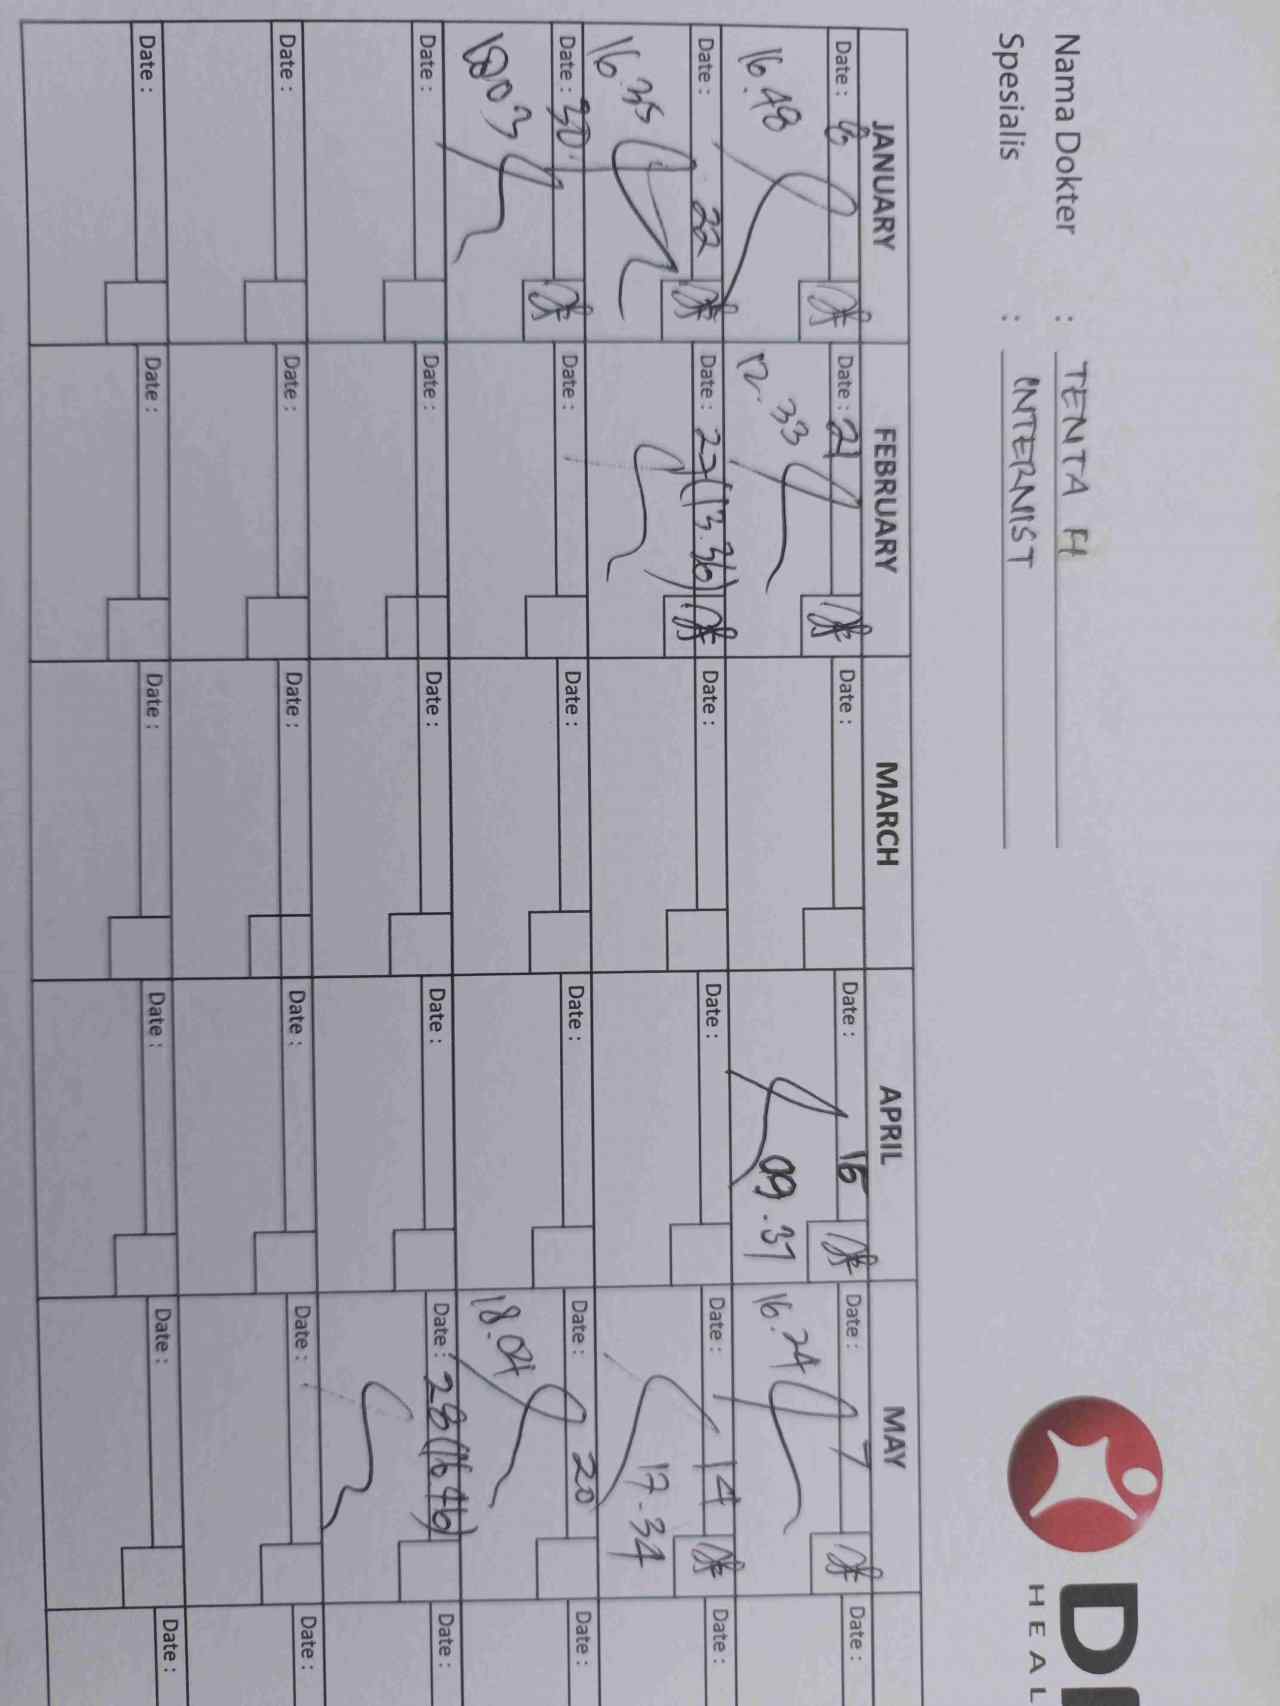 Nama Dokter : TENTA H
Spesialis : INTERNIST
DI
HEAL
JANUARY FEBRUARY MARCH APRIL MAY
Date : 8 Date : 21 Date : Date : 15 Date : 7 Date :
16.48 12.33 09.37 16.24
Date : 22 Date : 27 (13.36) Date : Date : Date : 14 Date :
16.35 17.34
Date : 30 Date : Date : Date : Date : 20 Date :
18.03 18.04
Date : Date : Date : Date : Date : 28 (16.46) Date :
Date : Date : Date : Date : Date : Date :
Date : Date : Date : Date : Date : Date :